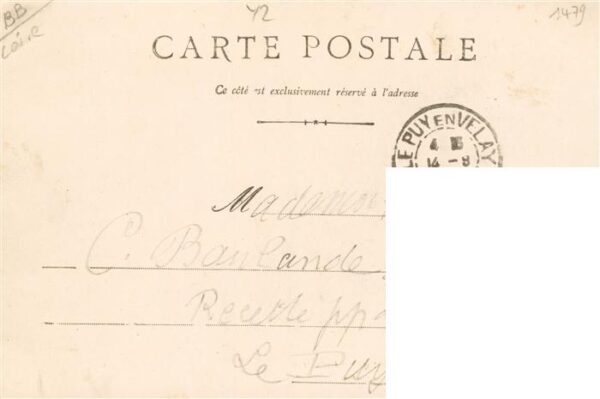 BB
Loire
42
1479
CARTE POSTALE
Ce côté est exclusivement réservé à l'adresse
LE PUY EN VELAY
4
14 - 9
C.
Recette
Le Puy